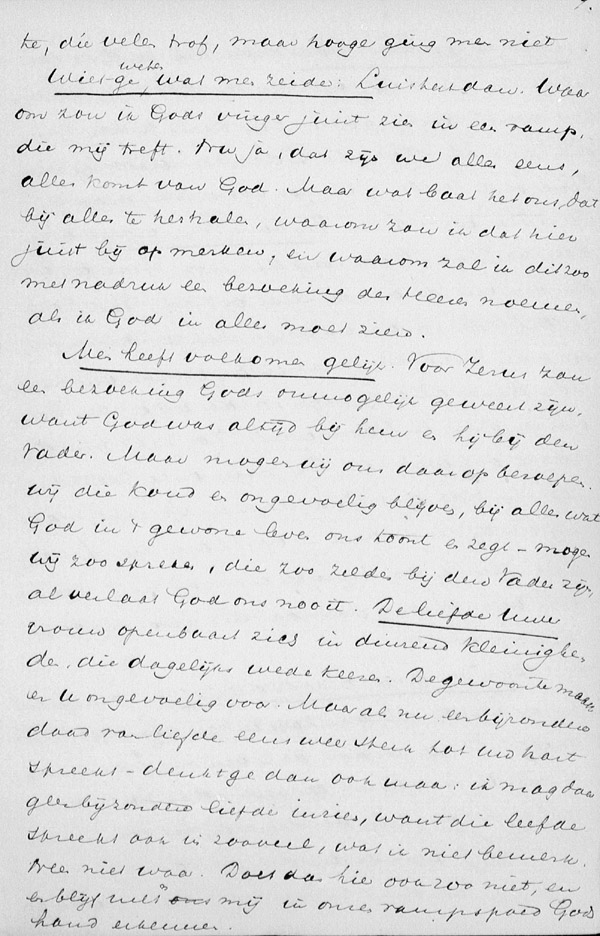 te, die velen trof, maar hooger ging men niet
Wilt ge weten, wat men zeide: Luistert dan. Waar
om zou ik Gods vinger juist zien in een ramp,
die mij treft. Nu ja, dat zijn we alle eens,
alles komt van God. Maar wat baat het ons, dat
bij alles te herhalen, waarom zou ik dat hier
juist bij op merken, en waarom zal ik dit zoo
met nadruk een bezoeking des Heeren noemen,
als ik God in alles moet zien.
Men heeft volkomen gelijk. Voor Jezus zou
een bezoeking Gods onmogelijk geweest zijn,
want God was altijd bij hem en hij bij den
Vader. Maar mogen wij ons daarop beroepen.
wij die koud en ongevoelig blijven, bij alles wat
God in 't gewone leven ons toont en zegt - mogen
wij zoo spreken, die zoo zelden bij den Vader zijn,
al verlaat God ons nooit. De liefde uwer
vrouw openbaart zich in duizend kleinighe-
den, die dagelijks wederkeeren. De gewoonte maakt
er u ongevoelig voor. Maar als nu een bijzondere
daad van liefde eens weer sterk tot uw hart
spreekt - denkt ge dan ook maar: ik mag daar
geen bijzondere liefde in zien, want die liefde
spreekt ook in zooveel, wat ik niet bemerk.
Neen niet waar. Doet dan hier ook zoo niet, en
en blijf met mij in onzen rampspoed Gods
hand erkennen.